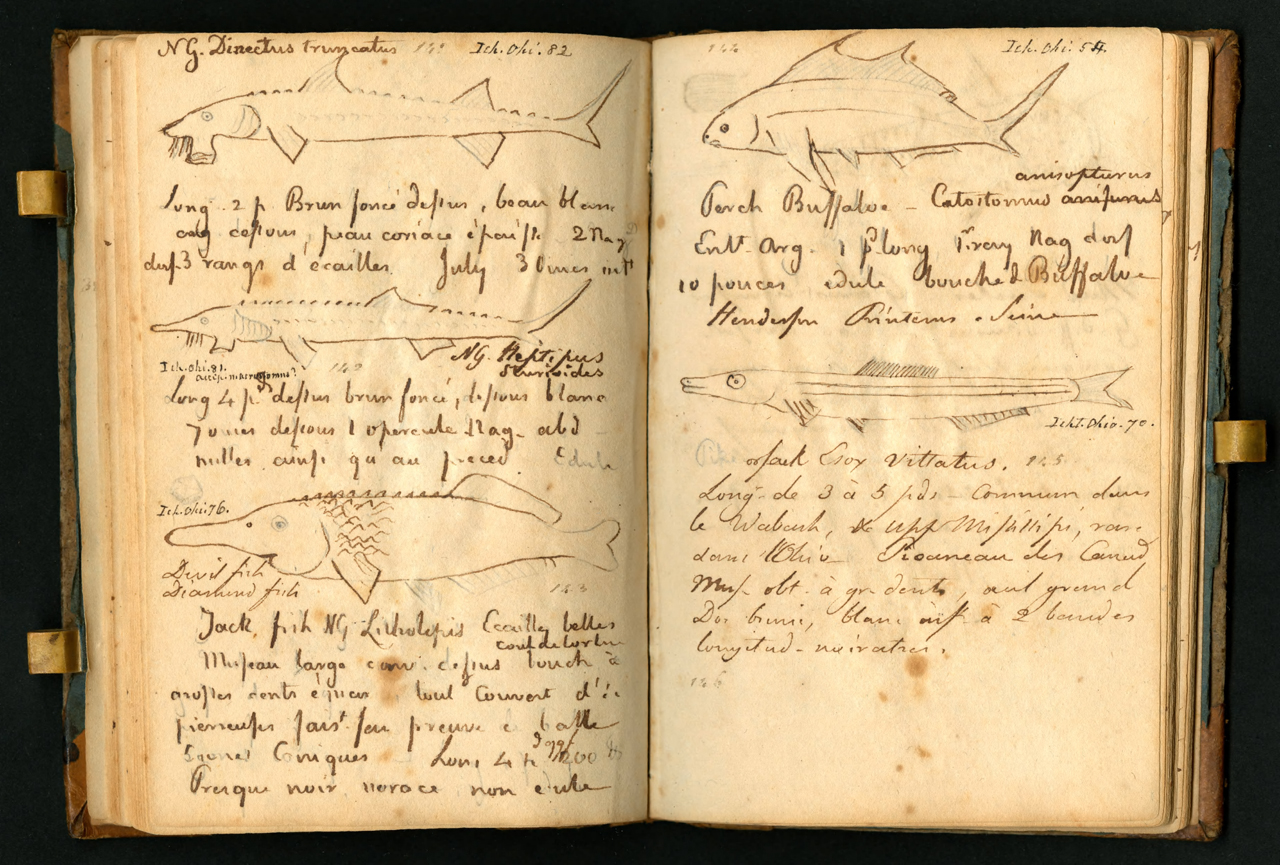 NG. Dinectus truncatus 141 Ich. Ohi. 82
Long. 2 p. Brun foncé dessus, beau blanc
dessous, peau coriace épaisse 2 Nag
dorf. 3 rangs d'écailles. July 3 Ounces
NG. Heptipus
Sturioides
Ich. Ohi. 81. 142
Long 4 p. dessus brun foncé, dessous blanc
dessous 1 opercule Nag. abd
nulles ainsi qu'au preced. Edule
Ich. Ohi. 76.
Devil fish
Diamond fish
143
Jack fish NG Litholepis Ecailles belles
Museau large conv. dessus bouch à
grosses dents tout Couvert d'é
pierreuses fais't feu preuve à balle
Coniques Long 4 p 200
Presque noir vorace non edule
144 Ich. Ohi. 54.
anisopturus
Perch Buffaloe – Catostomus
Ent't Arg. 1 p. long Nag dorf
10 pouces edule bouche d Buffaloe
Henderson Printems. Seine
Icht. Ohio. 70.
Jack Esox Vittatus. 145
Long. de 3 à 5 pds – Commun dans
le Wabash, & upp Missisipi, rare
dans l'Ohio Picaneau des Canad
Mus. obt. à gr dents, œil grand
Dos brun, blanc à 2 bandes
longitud. noiratres.
146